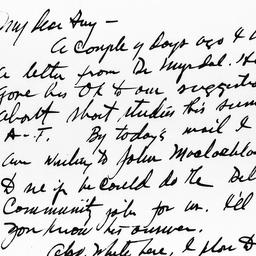 My dear Guy —
A couple of days ago I
a letter from Dr Myrdal. He
gave his OK to our suggestion
about short studies this sum
A-T. By today's mail I
am writing to John Maclachlan
to see if he could do the
Community jobs for us. I'll
you know his answer.
Also, while here, I plan